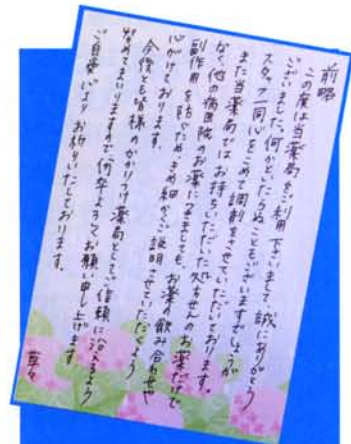 前略
この度は当薬局をご利用下さいまして、誠にありがとう
ございました。何かといたらぬこともございますでしょうが
スタッフ一同心をこめて調剤をさせていただいております。
また当薬局では、お持ちいただいた処方せんのお薬だけで
なく、他の病医院のお薬につきましても、お薬の飲み合わせや
副作用を防ぐため、きめ細かくご説明させていただくよう
心がけております。
今後とも皆様のかかりつけ薬局として、ご信頼に沿えるよう
努めてまいりますので、何卒よろしくお願い申し上げます。
ご自愛の程お祈りいたしております。
草々